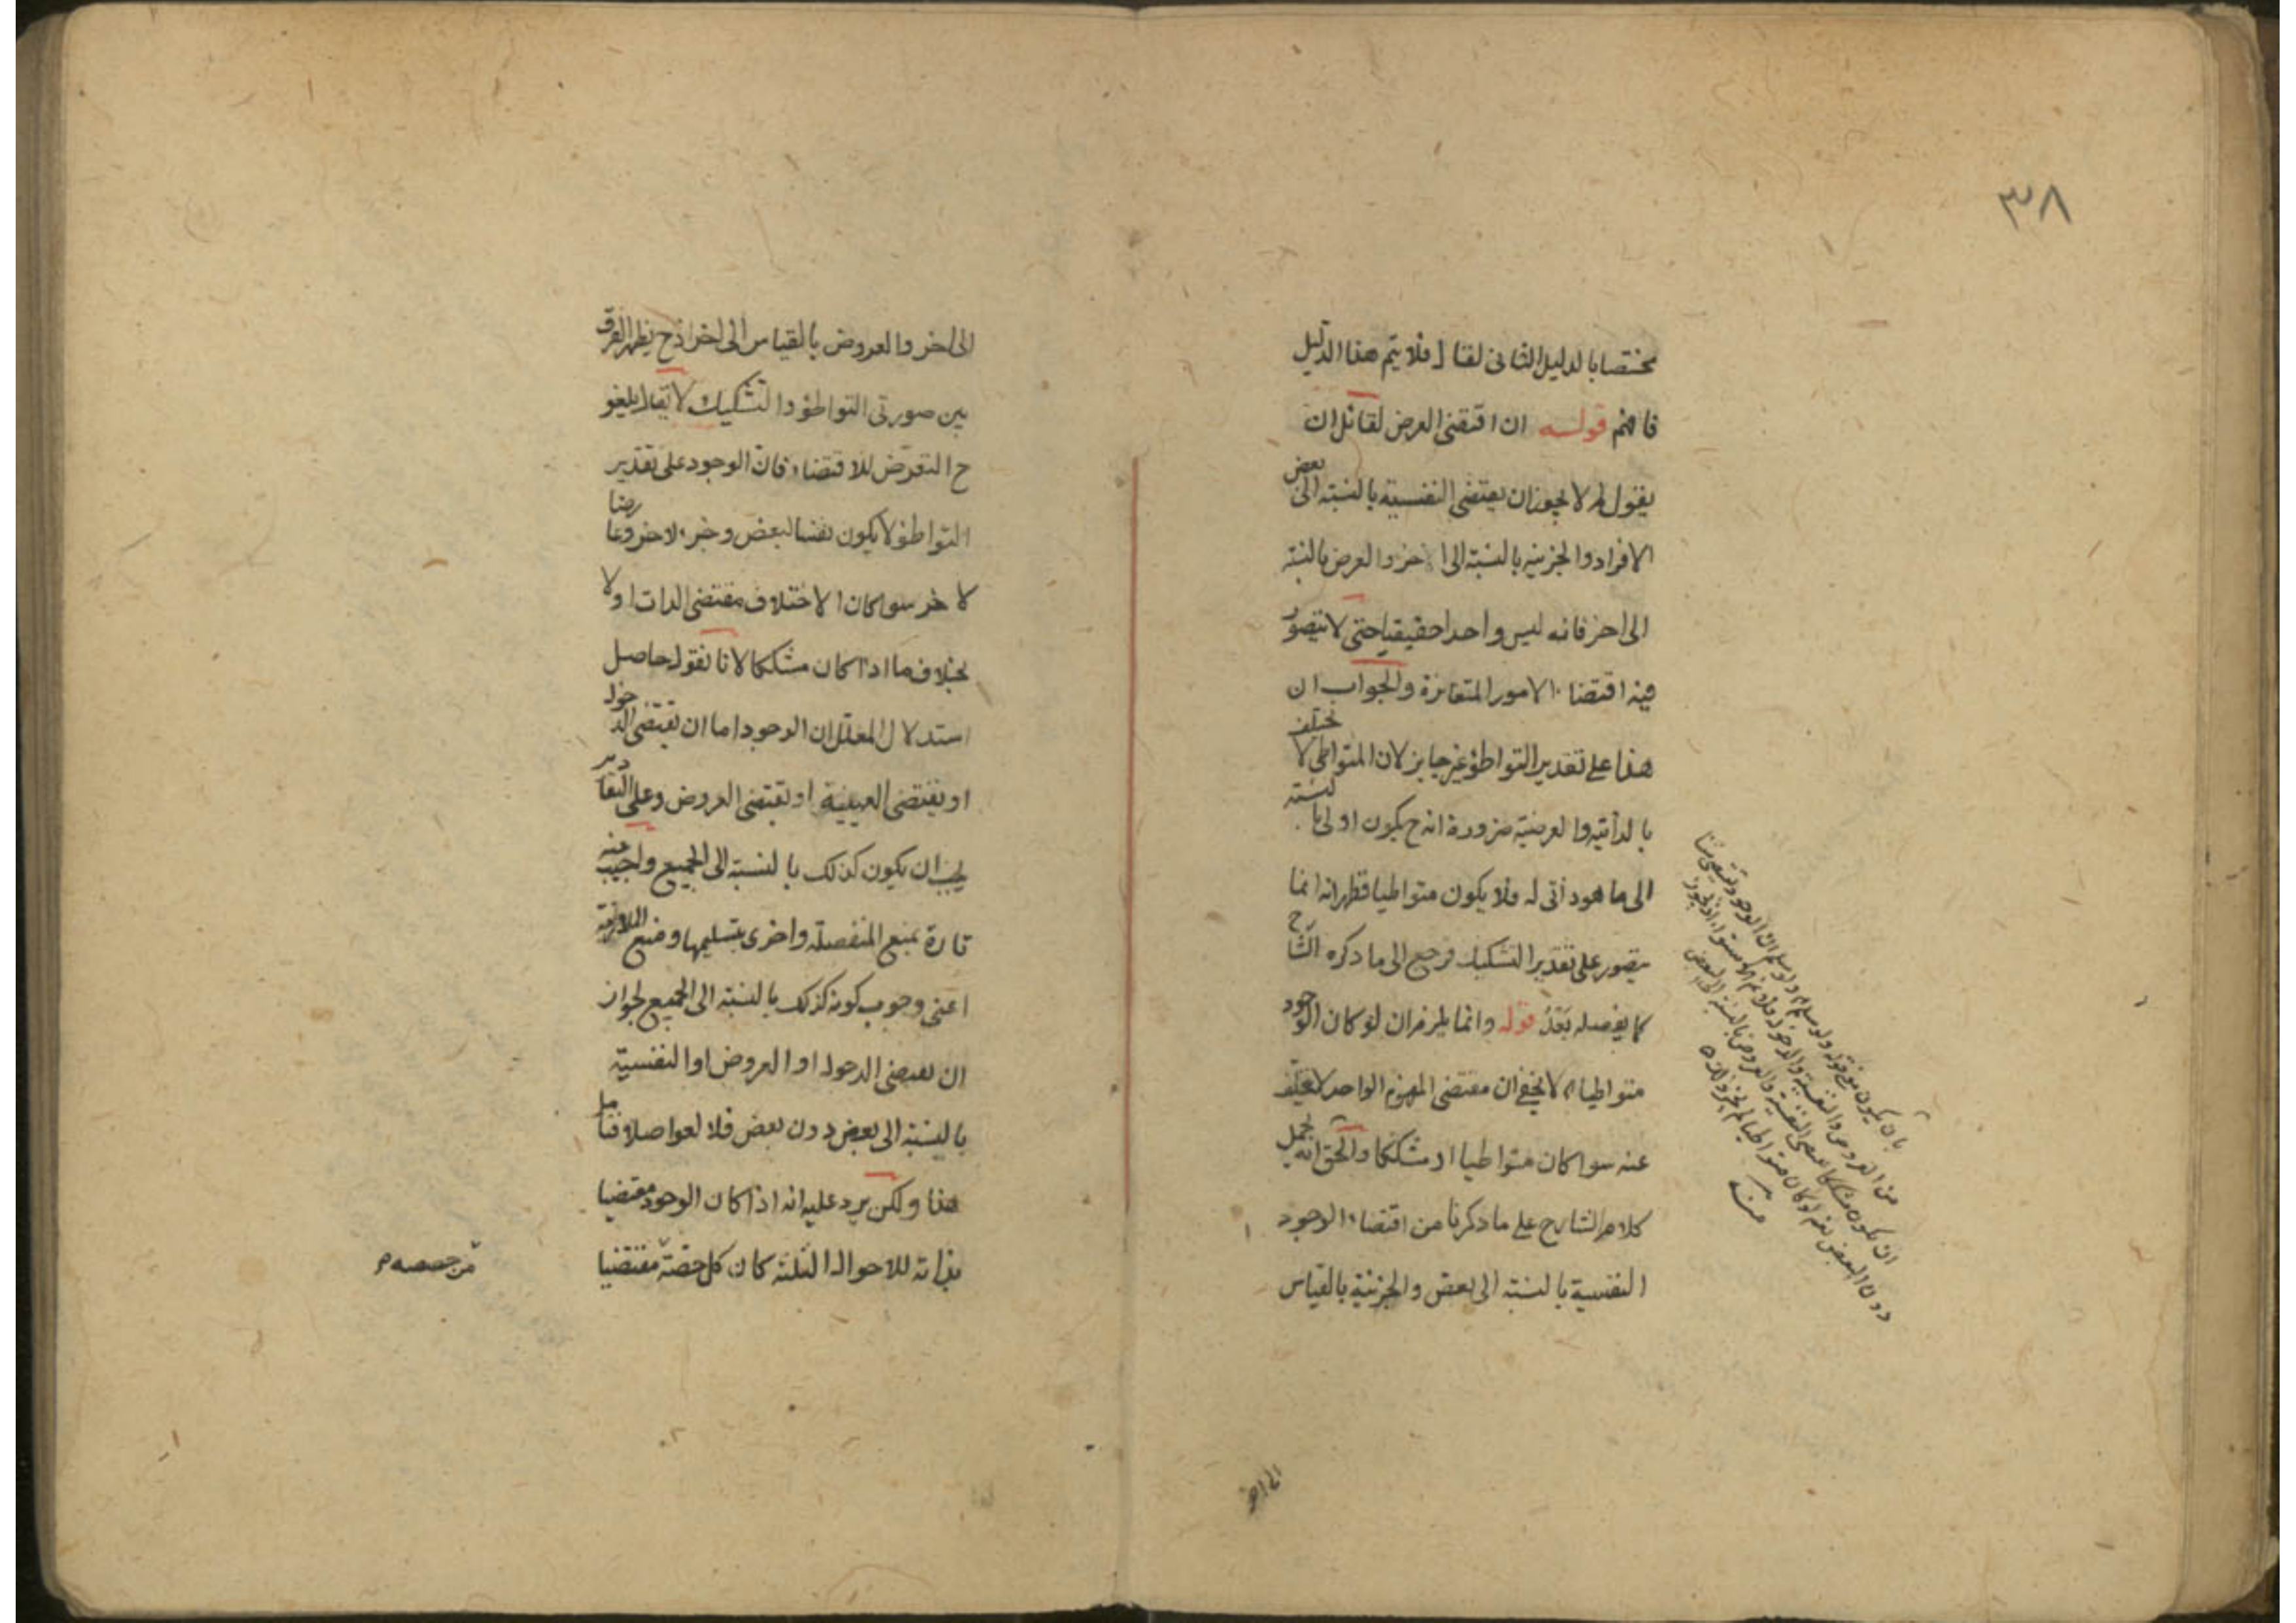 ٣٨
مختصا بالدليل الثانى لقال فلا يتم هذا الدليل
فافهم قوله ان اقتضى العرض لقائل ان
يقول لم لا يجوز ان يقتضى النفسية بالنسبة الى بعض
الافراد والجزئية بالنسبة الى الاخر والعرض بالنسبة
الى اخر فانه ليس واحدا حقيقيا حتى لا يتصور
فيه اقتضاء الامور المتغايرة والجواب ان
هذا على تقدير التواطؤ غير جايز لان المتواطى لا يختلف
بالذاتية والعرضية ضرورة انه ح يكون اولى بالنسبة
الى ما هو ذاتى له فلا يكون متواطيا فظهر انه انما
يتصور على تقدير التشكيك فرجع الى ما ذكره الشارح
كما يفصله بعد قوله وانما يلزم ان لو كان الوجود
متواطيا اه لا يخفى ان مقتضى المفهوم الواحد لا يختلف
عنه سوا كان متواطيا او مشككا والحق انه يحمل
كلام الشارح على ما ذكرنا من اقتضاء الوجود
النفسية بالنسبة الى بعض والجزئية بالقياس
بان يكون معنى قوله ولو سلم ولو سلم ان الوجود يقتضى شيئا
من العروض والنفسية والدخول فلا نم الاستواء اذ يجوز
ان يكون مشككا يقتضى النفسية والعروض بالنسبة الى البعض
دون البعض نعم لو كان متواطيا لم يجز ذلك
منه
الى اخر
الى اخر والعروض بالقياس الى اخر اذ ح يظهر الفرق
بين صورتى التواطؤ والتشكيك لا يقال يلغو
ح التعرض للاقتضاء فان الوجود على تقدير
التواطؤ لا يكون نفسا لبعض وجزء لاخر وعارضا
لاخر سوا كان الاختلاف مقتضى الذات اولا
بخلاف ما اذا كان مشككا لانا نقول حاصل
استدلال المعلل ان الوجود اما ان يقتضى الدخول
او يقتضى العينية او يقتضى العروض وعلى التقادير
يجب ان يكون كذلك بالنسبة الى الجميع واجيب عنه
تارة بمنع المنفصلة واخرى بتسليمها ومنع الملازمة
اعنى وجوب كونه كذلك بالنسبة الى الجميع لجواز
ان يقتضى الدخول او العروض او النفسية
بالنسبة الى بعض دون بعض فلا لغو اصلا فتامل
هذا ولكن يرد عليه انه اذا كان الوجود مقتضيا
بذاته للاحوال الثلثة كان كل حصة مقتضيا
من حصصه م